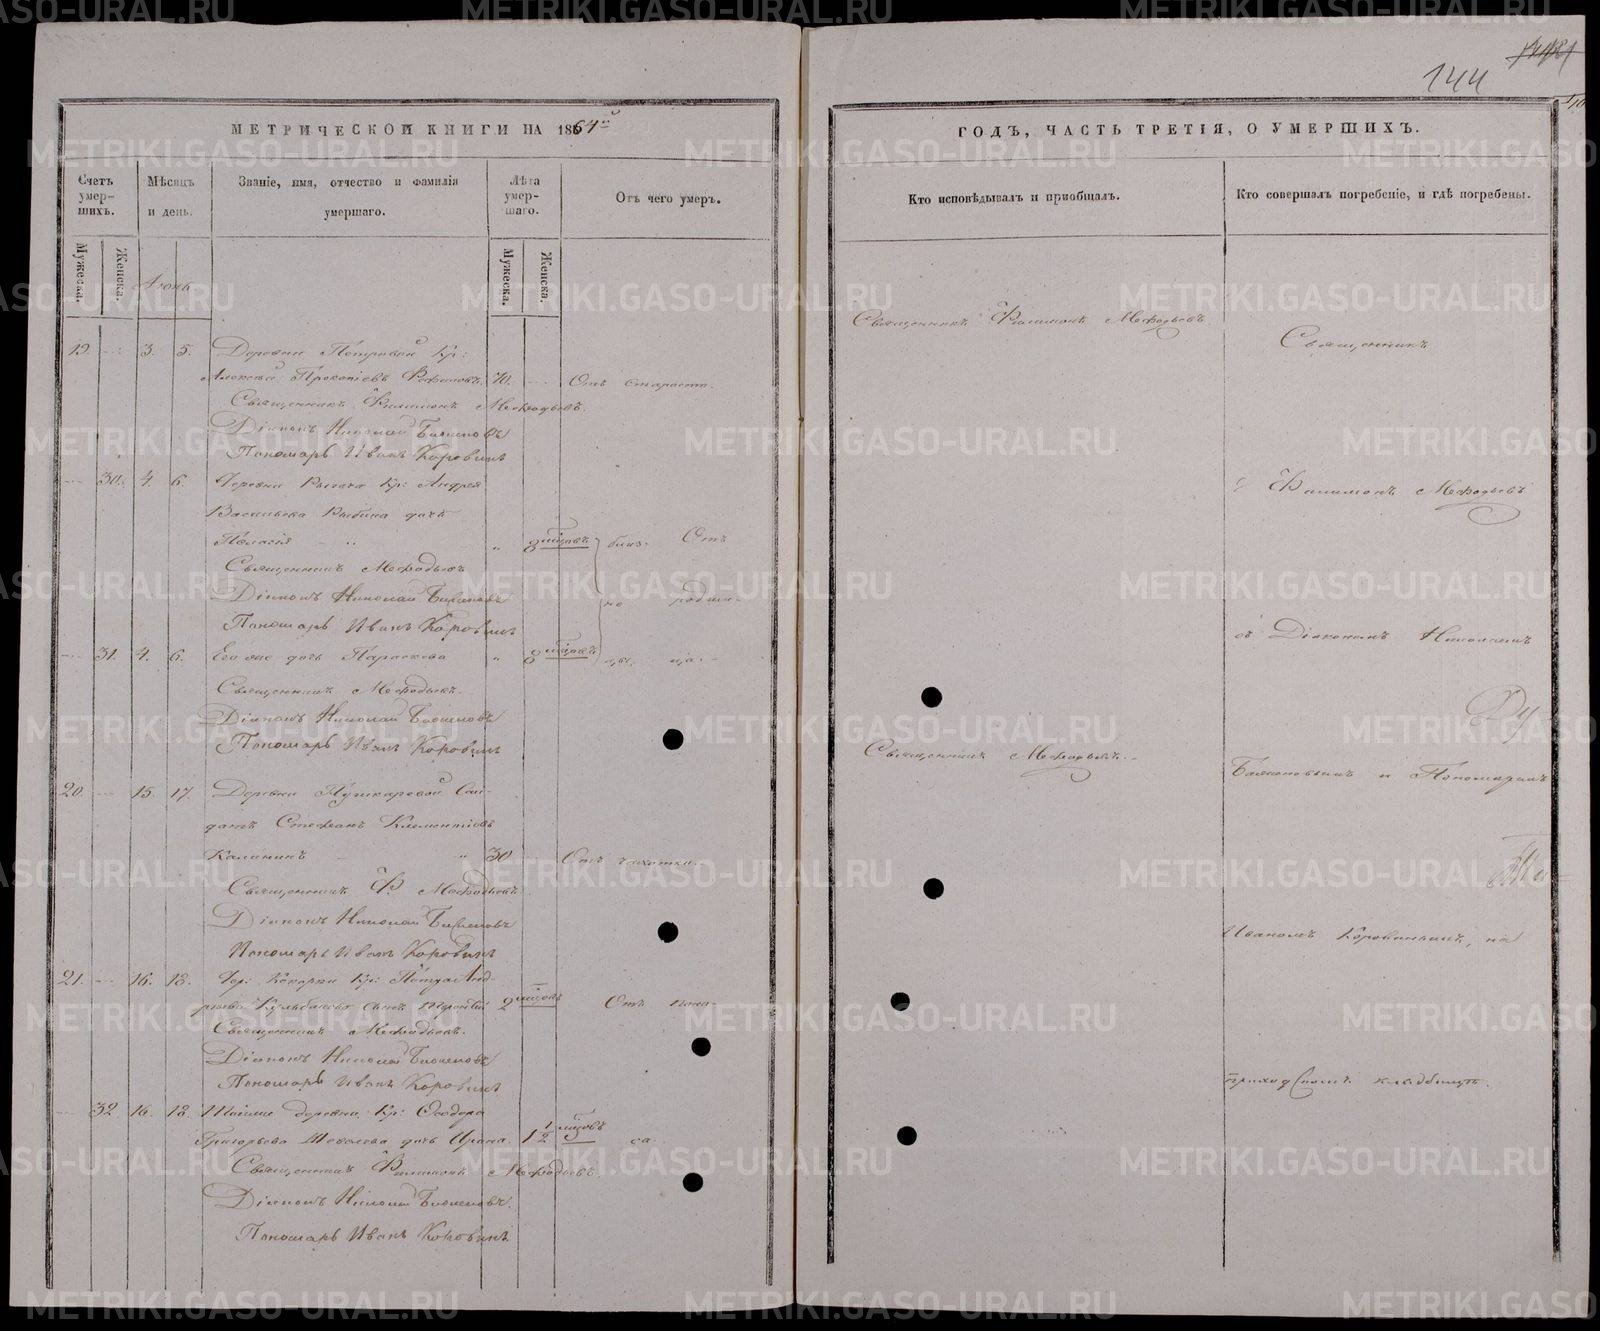 144
МЕТРИЧЕСКОЙ КНИГИ НА 1864й
ГОДЪ, ЧАСТЬ ТРЕТІЯ, О УМЕРШИХЪ.
Счетъ умершихъ.
Мѣсяцъ и день.
Званіе, имя, отчество и фамилія умершаго.
Лѣта умершаго.
Отъ чего умеръ.
Кто исповѣдывалъ и пріобщалъ.
Кто совершалъ погребеніе, и гдѣ погребены.
Мужеска.
Женска.
Мужеска.
Женска.
Священникъ Филимонъ Мефодьевъ
Священникъ
19. 3. 5. Деревни Петровой Кр:
Алексѣй Прокопіевъ 70. Отъ старости.
Священникъ Филимонъ Мефодьевъ.
Діаконъ Николай
Пономарь Иванъ Коровинъ
30. 4. 6. Деревни Кр: Андрея
Филимонъ Мефодьевъ
Васильева дочь
Пелагія 8 мѣсяцовъ Отъ
Священникъ Мефодьевъ
Діаконъ Николай
Пономарь Иванъ Коровинъ
съ Діакономъ Николаемъ
31. 4. 6. Его же дочь Параскева 8 мѣсяцовъ
Священникъ Мефодьевъ.
Діаконъ Николай
Пономарь Иванъ Коровинъ
Священникъ Мефодьевъ.
и Пономаремъ
20. 15 17. Деревни Пушкаревой Сол-
датъ Стефанъ Климентіевъ
Калининъ 30 Отъ чахотки.
Священникъ Ф. Мефодьевъ.
Діаконъ Николай
Пономарь Иванъ Коровинъ
Иваномъ Коровинымъ, на
21. 16. 18. Дер: Кокарки Кр: Петра Анд-
реева сынъ 2 мѣсяцовъ Отъ поно-
Священникъ Мефодьевъ.
Діаконъ Николай
Пономарь Иванъ Коровинъ
приходскомъ кладбищѣ.
32. 16. 18. Тойже деревни Кр: Ѳеодора
Григорьева дочь Ирина. 1 1/2 мѣсяцовъ са.
Священникъ Филимонъ Мефодьевъ.
Діаконъ Николай
Пономарь Иванъ Коровинъ
METRIKI.GASO-URAL.RU